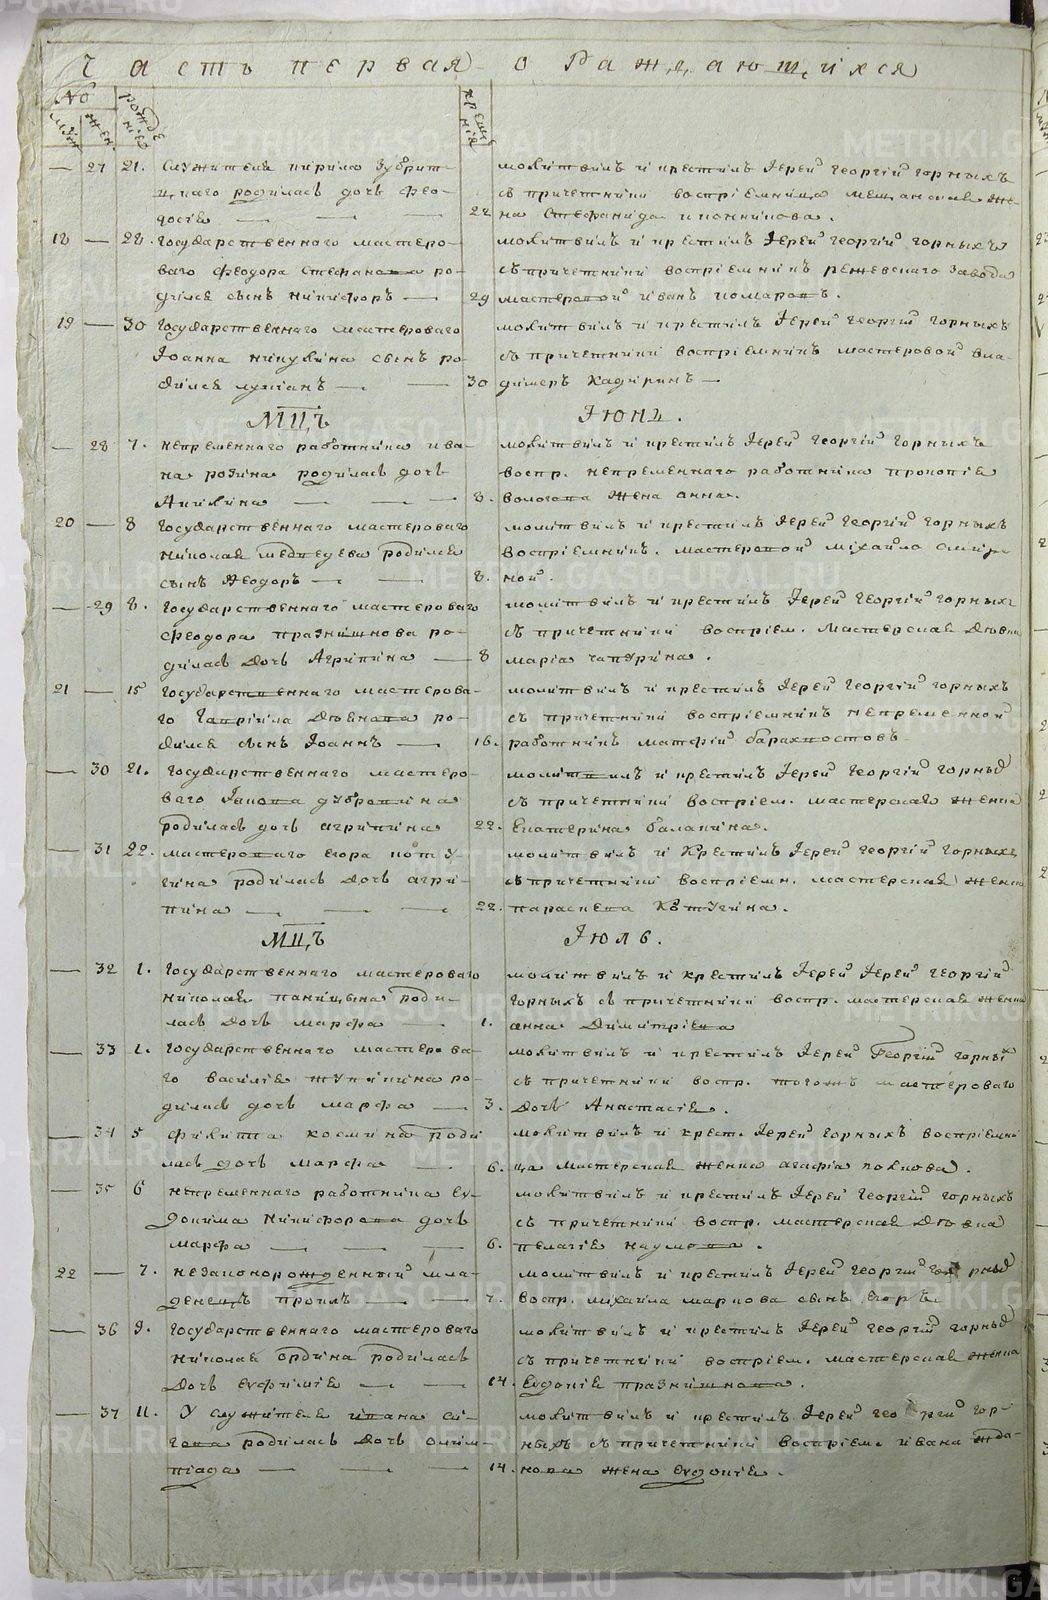 Часть первая о Раждающихся
No
муж.
жен.
рожде
нія
креще
нія
— 27 21. Служителя Кирила Зубрит-
цкаго родилась дочь Фео-
досія — — —
молитвилъ и крестилъ Іерей Георгій Горныхъ
съ причетники воспріемница мещанская же-
22 на Стефанида Иконникова.
18 — 28. Государственнаго мастеро-
ваго Феодора Степанова ро-
дился сынъ Никифоръ —
молитвилъ и крестилъ Іерей Георгій Горныхъ
съ причетники воспріемникъ режевскаго завода
29 мастеровой Иванъ Комаровъ.
19 — 30 Государственнаго мастероваго
Іоанна Никулина сынъ ро-
дился Лукіанъ — —
молитвилъ и крестилъ Іерей Георгій Горныхъ
съ причетники воспріемникъ мастеровой Вла-
30 димеръ Кадкинъ —
МЦЪ Іюнь.
— 28 7. непременнаго работника Ива-
на Розина родилась дочь
Акилина — — —
молитвилъ и крестилъ Іерей Георгій Горныхъ
воспр. непременнаго работника Прокопія
8. Вологова жена Анна.
20 — 8 Государственнаго мастероваго
Николая Медведева родился
сынъ Феодоръ — —
молитвилъ и крестилъ Іерей Георгій Горныхъ
воспріемникъ. мастеровой Михайло Смир-
8. ной.
— 29 8. Государственнаго мастероваго
Феодора Празнишнова ро-
дилась дочь Агрипина —
молитвилъ и крестилъ Іерей Георгій Горныхъ
съ причетники воспріем. мастерская Девка
8 Марія Чапурина.
21 — 15 Государственнаго мастерова-
го Гавріила Девкова ро-
дился сынъ Іоаннъ —
молитвилъ и крестилъ Іерей Георгій Горныхъ
съ причетники воспріемникъ непременной
16. работникъ Матфій Барахвостовъ
— 30 21. Государственнаго мастеро-
ваго Іакова Дубровина
родилась дочь Агрипина
молитвилъ и крестилъ Іерей Георгій Горныхъ
съ причетники воспріем. мастерская женка
22. Екатерина Балакина.
— 31 22. мастероваго Егора Коту-
гина родилась дочь Агри-
пина — — —
молитвилъ и Крестилъ Іерей Георгій Горныхъ
съ причетники воспріемн. мастерская женка
22. Параскева Котугина.
МЦЪ Іюль.
— 32 1. Государственнаго мастероваго
Николая Паницына роди-
лась дочь Марфа —
молитвилъ и крестилъ Іерей Іерей Георгій
Горныхъ съ причетники воспр. мастерская женка
1. Анна Димитріева
— 33 1. Государственнаго мастерова-
го Василія Жукикина ро-
дилась дочь Марфа —
молитвилъ и крестилъ Іерей Георгій Горных
съ причетники воспр. тогожъ мастероваго
3. дочь Анастасія.
— 34 5 Филипа Космина роди
лась дочь Марфа —
молитвилъ и крест. Іерей Горныхъ воспріемни
6. ца мастерская женка Агафіа Полкова.
— 35 6 непременнаго работника Ев-
докима Никифорова дочь
Марфа — — —
молитвилъ и крестилъ Іерей Георгій Горныхъ
съ причетники воспр. мастерская Девка
6. Пелагія Наумова.
22 — 7. незаконорожденный мла-
денецъ Прокль — —
молитвилъ и крестилъ Іерей Георгій Горныхъ
7. воспр. Михаила Маркова сынъ Егоръ
— 36 9. Государственнаго мастероваго
Николая Ордина родилась
дочь Евфимія — —
молитвилъ и крестилъ Іерей Георгій Горныхъ
съ причетники воспріем. мастерская женка
14. Евдокія Празнишнова.
— 37 11. У служителя Ивана
родилась дочь Олим-
піада — — —
молитвилъ и крестилъ Іерей Георгій Гор-
ныхъ съ причетники воспріем. Ивана Жда-
14. нова жена Евдокія.